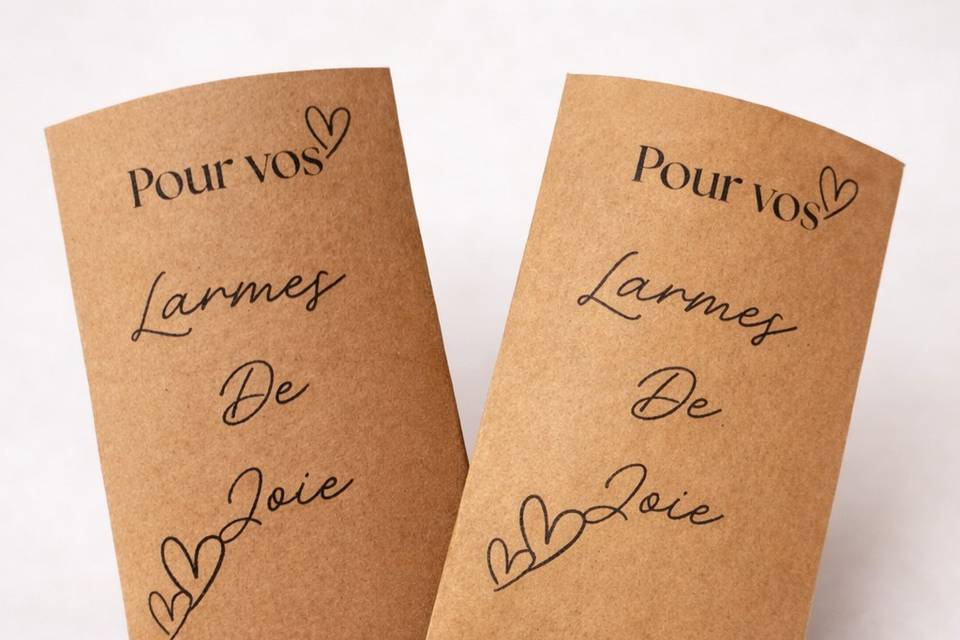 Pour vos
Larmes
De
Joie
Pour vos
Larmes
De
Joie